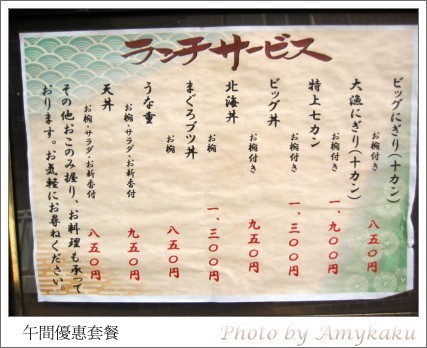 ランチサービス
ビッグにぎり(十カン)
お椀付き
八五〇円
大漁にぎり(十カン)
お椀付き
一、九〇〇円
特上七カン
お椀付き
一、三〇〇円
ビッグ丼
お椀付き
九五〇円
北海丼
お椀
一、三〇〇円
まぐろブツ丼
お椀
八五〇円
うな重
お椀・サラダ・お新香付
九五〇円
天丼
お椀・サラダ・お新香付
八五〇円
その他おこのみ握り、お料理も承って
おります。お気軽にお尋ねください。
午間優惠套餐
Photo by Amykaku